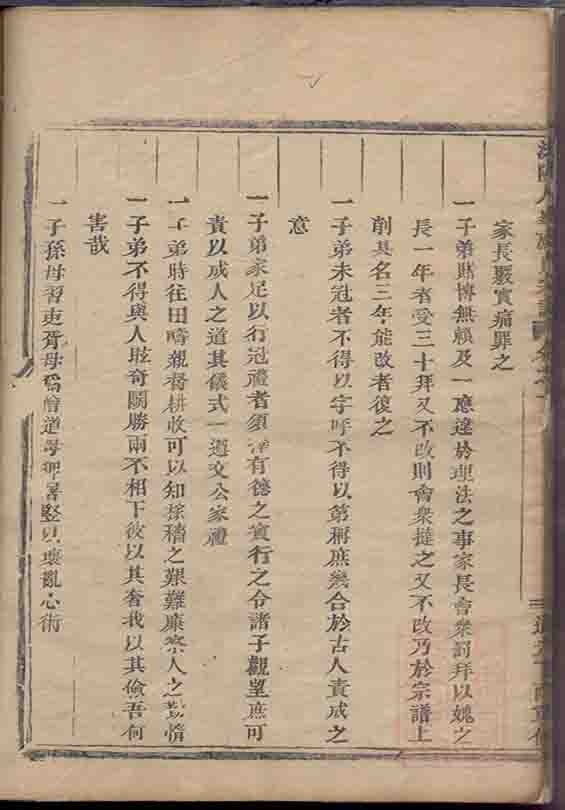 家長嚴實痛罪之
一子弟賭博無賴及一應違於理法之事家長會衆罰拜以媿之
長一年者受三十拜又不改則會衆撻之又不改乃於宗譜上
削其名三年能改者復之
一子弟未冠者不得以字呼不得以第稱庶幾合於古人責成之
意
一子弟家足以行冠禮者須擇有德之賓行之令諸子觀望庶可
責以成人之道其儀式一遵文公家禮
一子弟時往田疇親督耕收可以知稼穡之艱難廉察人之勤惰
一子弟不得與人眩奇鬭勝兩不相下彼以其奢我以其儉吾何
害哉
一子孫毋習吏胥毋爲僧道毋狎屠豎以壞亂心術